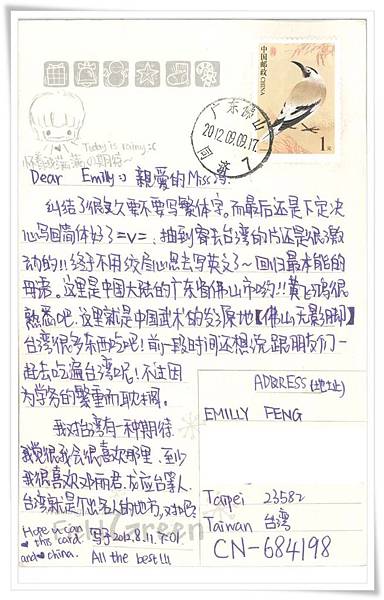 中国邮政
CHINA
1元
广东佛山
2012.09.09.17
7
Today is rainy :(
Dear Emilly :) 親爱的Miss冯.
纠结了很久要不要写繁体字,而最后还是下定决
心写回简体好了=v=,抽到寄去台湾的片还是很激
动的!!终于不用绞尽心思去写英文了~回归最本能的
母语。这里是中国大陆的广东省佛山市哟!!黄飞鸿很
熟悉吧,这里就是中国武术的发源地【佛山无影脚】
台湾很多东西吃呢!前一段时间还想说跟朋友们一
起去吃遍台湾呢!不过因
为学务的繁重而耽搁。
我对台湾有一种期待
我觉得我会很喜欢那里,至少
我很喜欢邓丽君,龙应台等人.
台湾就是丁出名人的地方,对吧?
Hope u can
this card 写于2012.8.11. 7:01
and china. All the best!!!
ADDRESS(地址)
EMILLY FENG
Taipei 23582
Taiwan 台湾
CN-684198